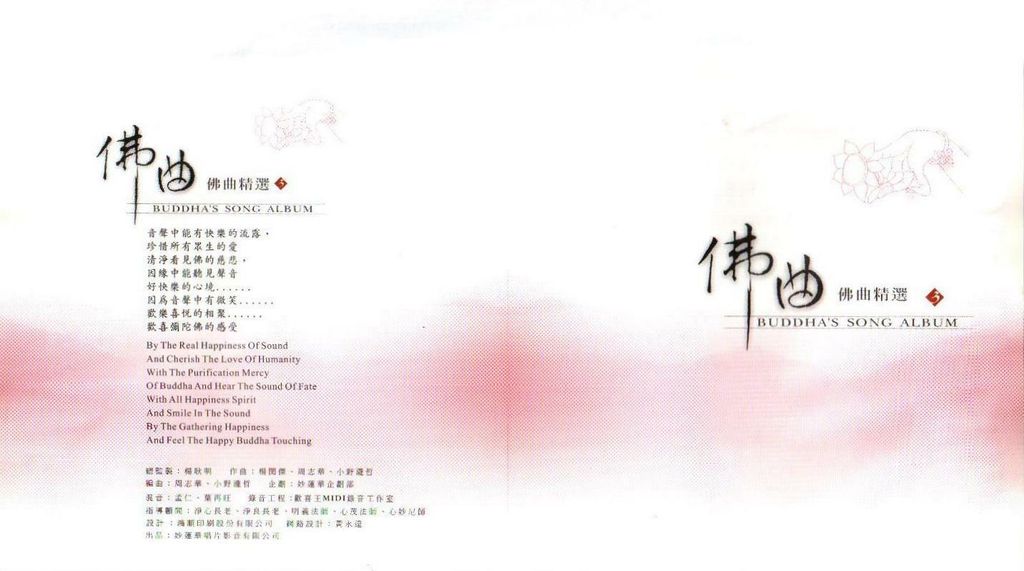 佛曲 佛曲精選 3
BUDDHA'S SONG ALBUM
音聲中能有快樂的流露，
珍惜所有眾生的愛
清淨看見佛的慈悲，
因緣中能聽見聲音
好快樂的心境......
因為音聲中有微笑......
歡樂喜悅的相聚......
歡喜彌陀佛的感受
By The Real Happiness Of Sound
And Cherish The Love Of Humanity
With The Purification Mercy
Of Buddha And Hear The Sound Of Fate
With All Happiness Spirit
And Smile In The Sound
By The Gathering Happiness
And Feel The Happy Buddha Touching
總監製：楊耿明 作曲：楊閔傑、周志華、小野瀧哲
編曲：周志華、小野瀧哲 企劃：妙蓮華企劃部
混音：孟仁、葉再旺 錄音工程：歡喜王MIDI錄音工作室
指導顧問：淨心長老、淨良長老、明義法師、心茂法師、心妙尼師
設計：鴻順印刷股份有限公司 網路設計：黃永遠
出品：妙蓮華唱片影音有限公司
佛曲 佛曲精選 3
BUDDHA'S SONG ALBUM